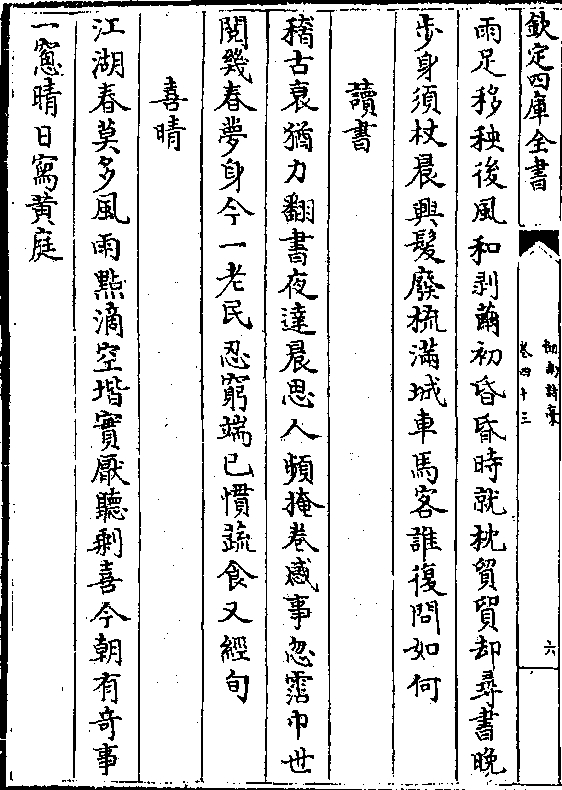 欽定四庫全書
劒南詩稾
卷四十三
六
雨足移秧後風和剥繭初昏昏時就枕貿貿却尋書晚
步身須杖晨興髪廢梳滿城車馬客誰復問如何
讀書
稽古衰猶力翻書夜達晨思人頻掩卷感事忽霑巾世
閲幾春夢身今一老民忍窮端已慣蔬食又經旬
喜晴
江湖春莫多風雨點滴空堦實厭聽剰喜今朝有奇事
一窓晴日寫黄庭